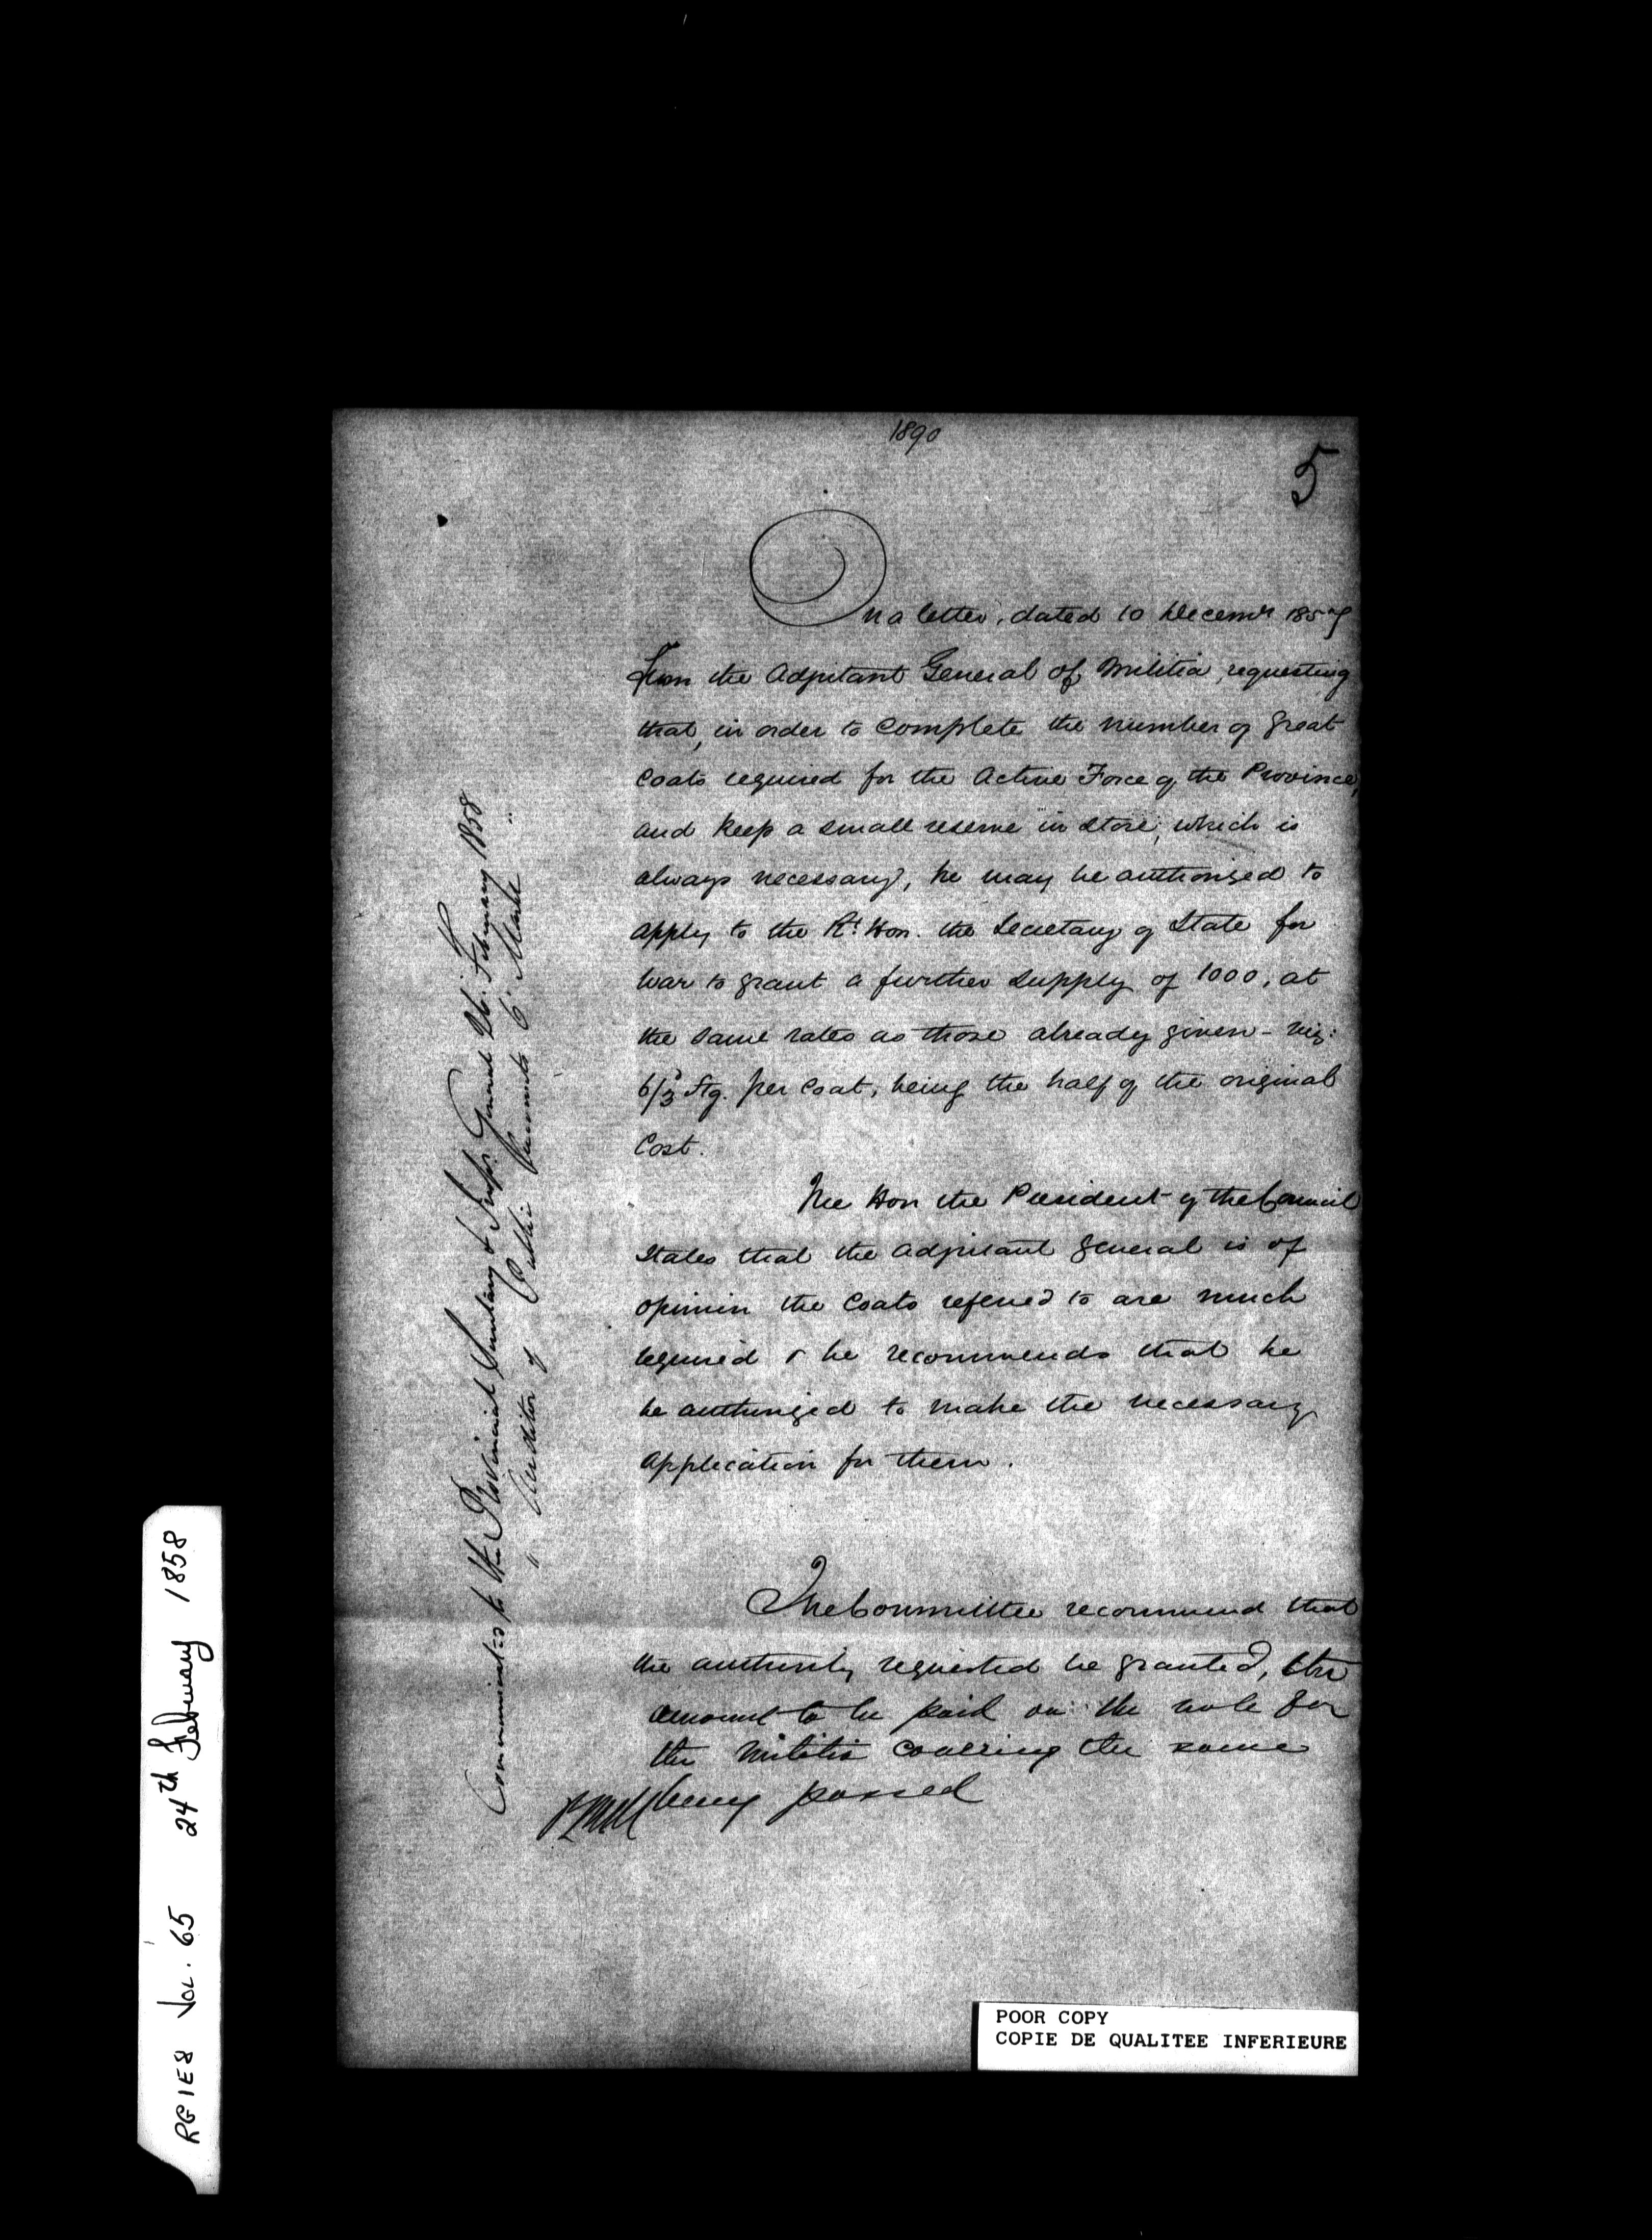 1890
5
On a letter, dated 10 Decemr 1857
From the Adjutant General of Militia, requesting
that, in order to complete the number of great
Coats required for the Active Force of the Province,
and keep a small reserve in store, which is
always necessary, he may be authorised to
apply to the Rt. Hon. the Secretary of State for
War to grant a further supply of 1000, at
the same rates as those already given - viz:
6/3d Stg. per Coat, being the half of the original
Cost.
The Hon the President of the Council
States that the Adjutant General is of
opinion the Coats referred to are much
required & he recommends that he
be authorized to make the necessary
Application for them.
The Committee recommend that
the authority requested be granted, the
amount to be paid on the vote for
the Militia covering the same
being passed
Communicated to the Provincial Secretary & Inspr. General 26. February 1858
" Auditor of Public Accounts 6 March "
RG1E8 Vol. 65 24th February 1858
POOR COPY
COPIE DE QUALITEE INFERIEURE